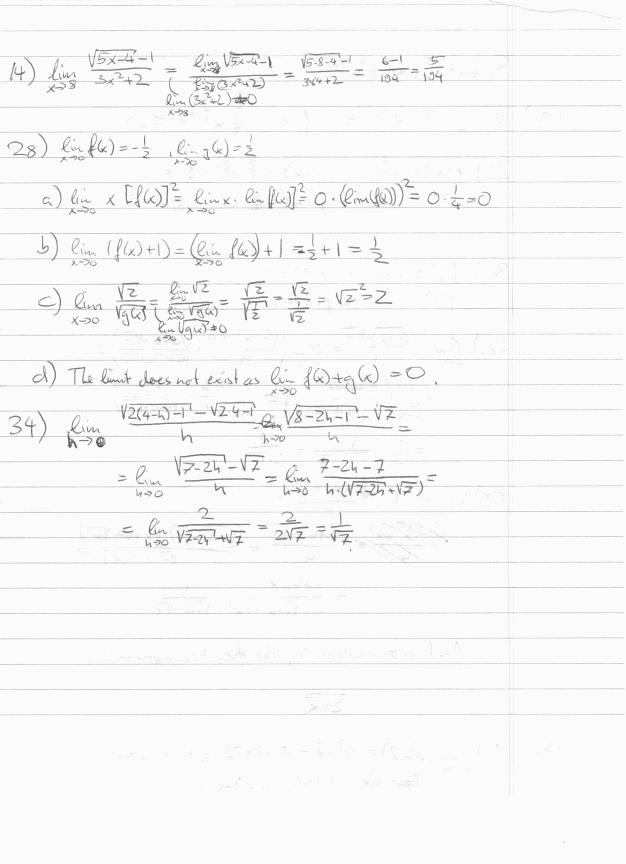 14) lim x→8 (√(5x-4) - 1)/(3x²+2) = (lim x→8 √(5x-4) - 1)/(lim x→8 (3x²+2)) = (√(5·8-4) - 1)/(3·64+2) = (6-1)/194 = 5/194
( lim x→8 (3x²+2) ≠ 0
28) lim x→0 f(x) = -1/2 , lim x→0 g(x) = 1/2
a) lim x→0 x [f(x)]² = lim x→0 x · lim [f(x)]² = 0 · (lim(f(x)))² = 0 · 1/4 = 0
b) lim x→0 (f(x)+1) = (lim x→0 f(x)) + 1 = -1/2 + 1 = 1/2
c) lim x→0 √2/√g(x) = (lim x→0 √2)/(lim x→0 √g(x)) = √2/√(1/2) = √2/(1/√2) = √2² = 2
( lim x→0 √g(x) ≠ 0
d) The limit does not exist as lim x→0 f(x)+g(x) = 0.
34) lim h→0 (√(2(4-h)-1) - √(2·4-1))/h = lim h→0 (√(8-2h-1) - √7)/h =
= lim h→0 (√(7-2h) - √7)/h = lim h→0 (7-2h-7)/(h·(√(7-2h)+√7)) =
= lim h→0 2/(√(7-2h)+√7) = 2/(2√7) = 1/√7.